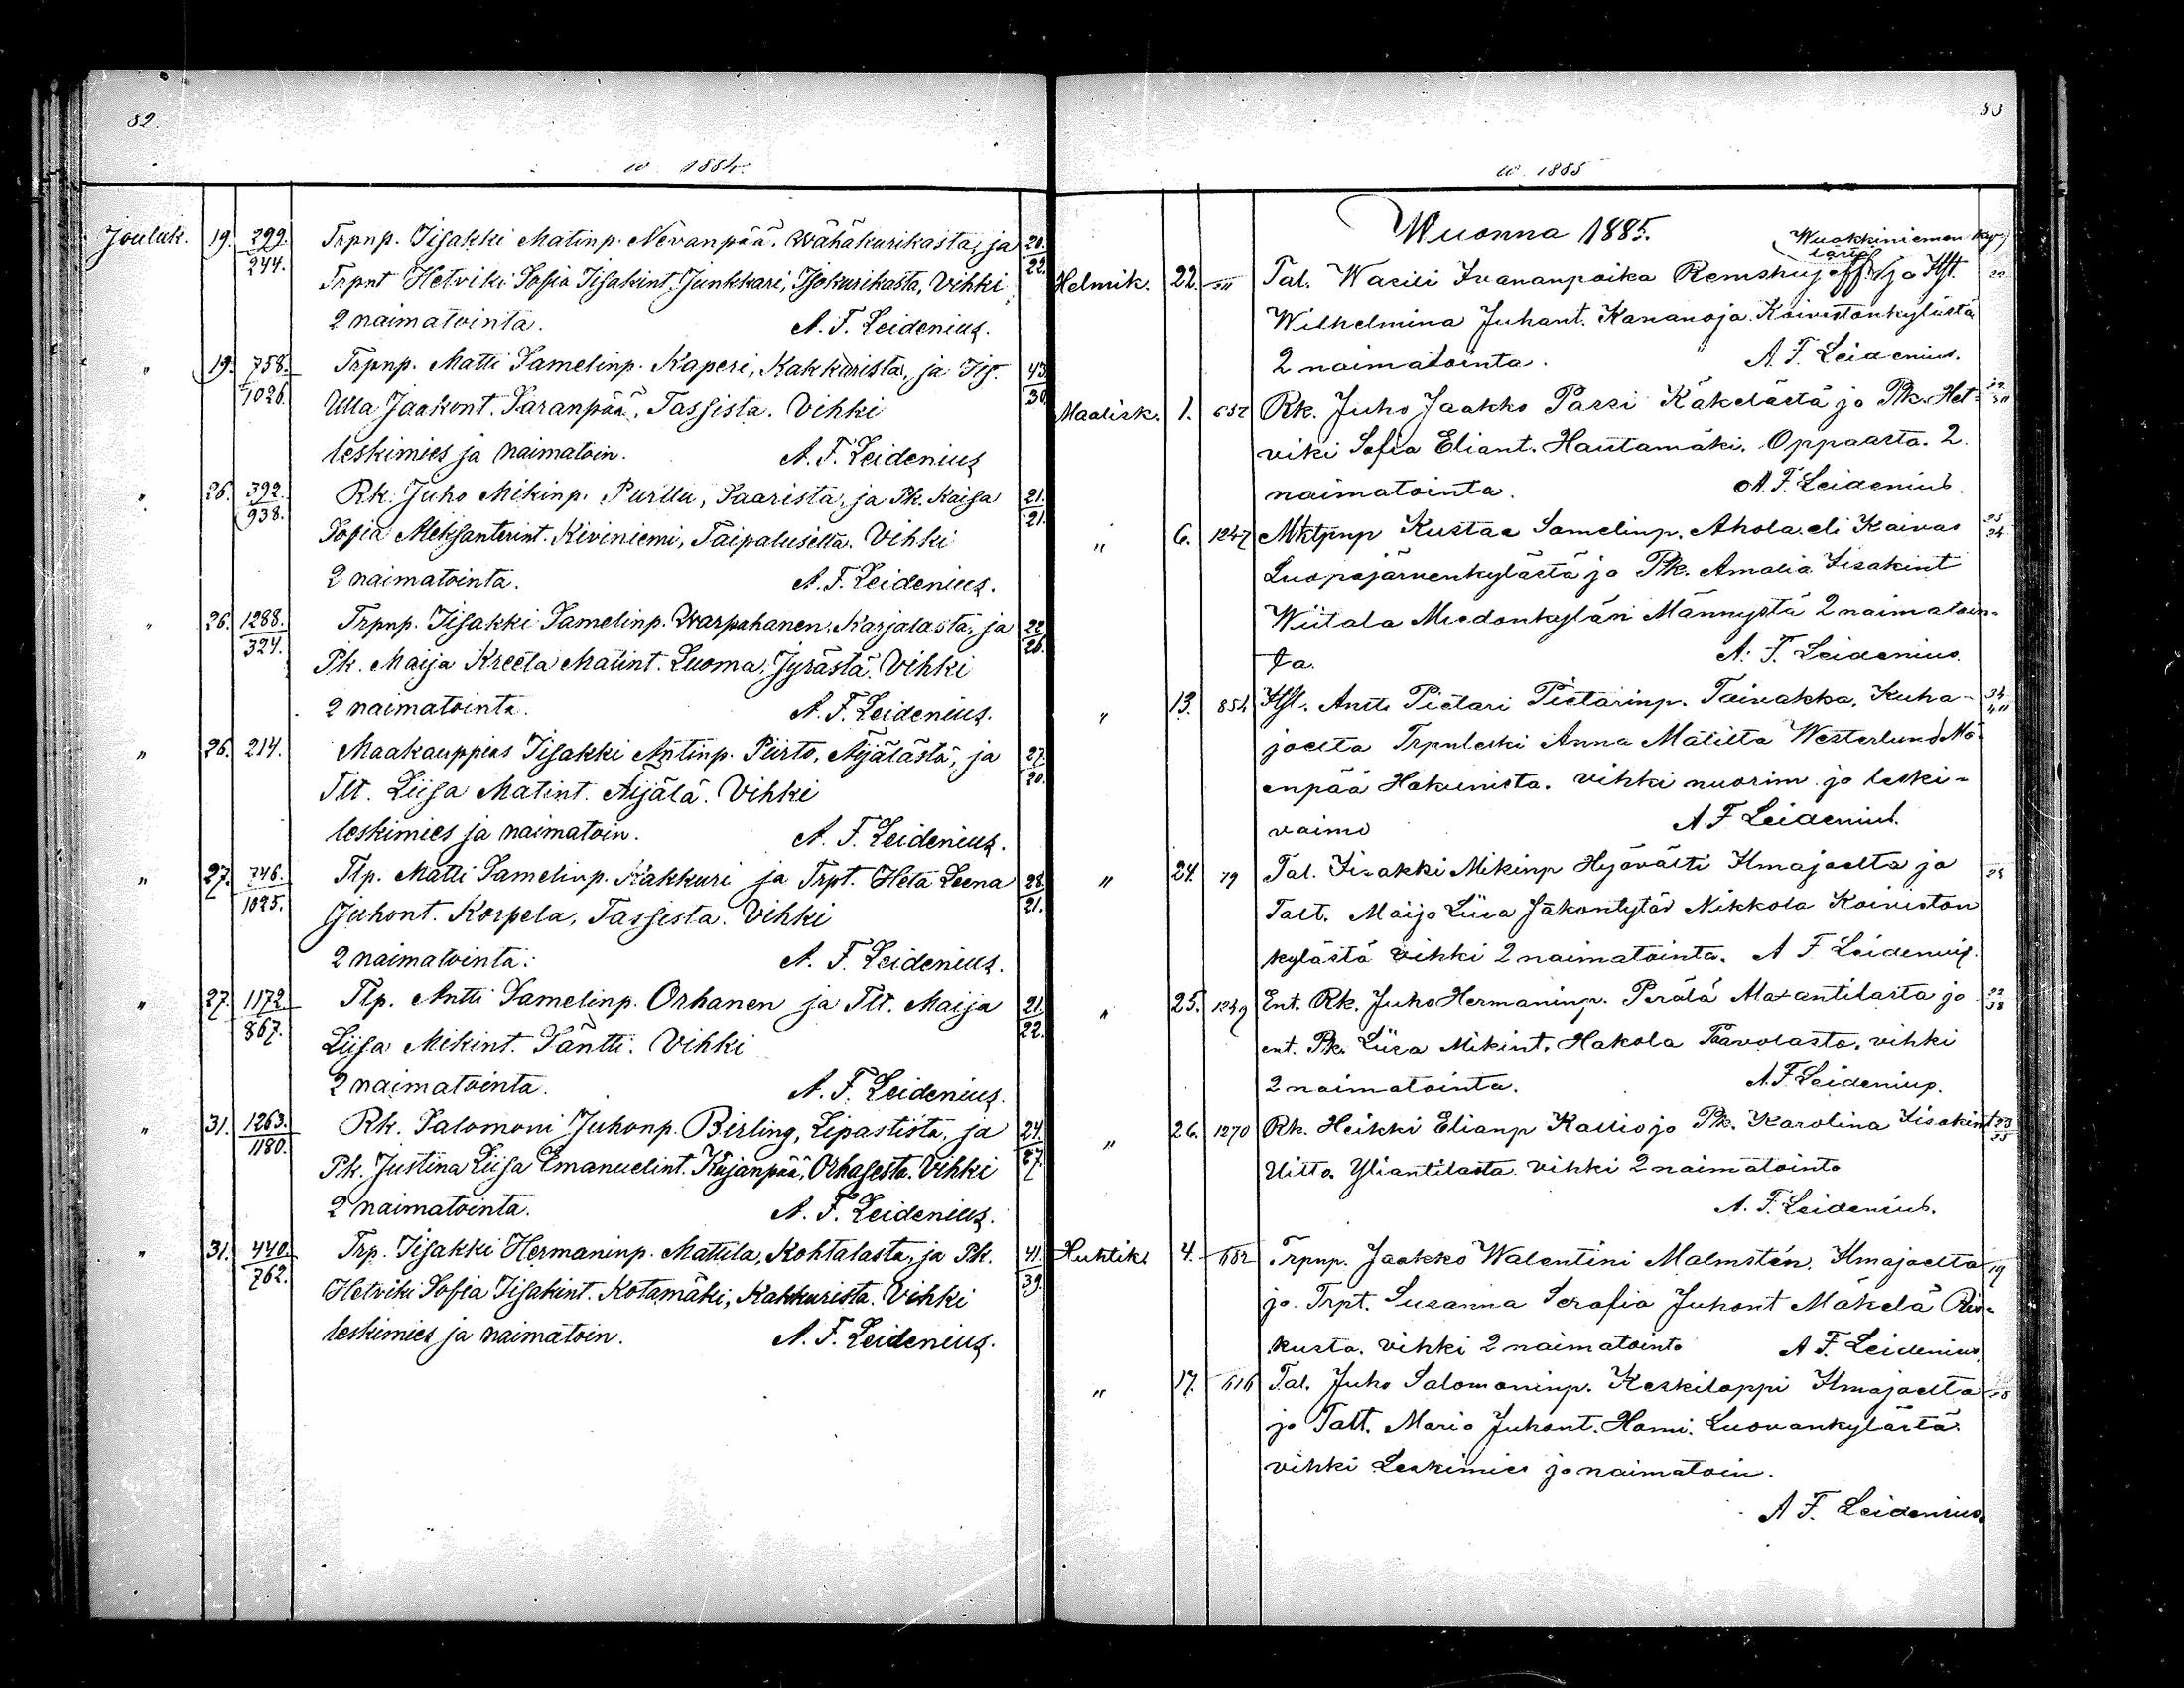 82.
w 1884.
Jouluk. 19. 299. Trpnp. Iisakki Matinp. Nevanpää. Wähäkurikasta, ja 20.
244. Trpnt Hetviki Sofia Iisakint. Junkkari, Isokurikasta, Vihki 22.
2 naimatointa. A. F. Leidenius.
" 19. 758. Trpnp. Matti Samelinp. Kaperi, Kakkurista, ja 43
1026. Ulla Jaakont. Saranpää, Tassista. Vihki 30
leskimies ja naimatoin. A. F. Leidenius
" 26. 392. Rk. Juho Mikinp. Purllu, Saarista, ja Pk. Kaisa 21.
938. Sofia Aleksanterint. Kiviniemi, Taipaluselta. Vihki 21.
2 naimatointa. A. F. Leidenius.
" 26. 1288. Trpnp. Iisakki Samelinp. Warpahanen, Karjalasta, ja 22
324. Pk. Maija Kreeta Matint. Luoma, Jyrästä. Vihki 26.
2 naimatointa. A. F. Leidenius.
" 26. 214. Maakauppias Iisakki Antinp. Piirto, Äijälästä, ja 27.
Tlt. Liisa Matint. Äijälä. Vihki 20.
leskimies ja naimatoin. A. F. Leidenius.
" 27. 746. Tlp. Matti Samelinp. Kakkuri ja Trpt. Heta Leena 28.
1025. Juhont. Korpela, Tassista. Vihki 21.
2 naimatointa. A. F. Leidenius.
" 27. 1172 Tlp. Antti Samelinp. Orhanen ja Tlt. Maija 21.
867. Liisa Mikint. Säntti. Vihki 22.
2 naimatointa. A. F. Leidenius.
" 31. 1263. Rk. Salomoni Juhonp. Birling, Lipastista, ja 24.
1180. Pk. Justina Liisa Emanuelint. Kujanpää, Orhasesta. Vihki 27
2 naimatointa. A. F. Leidenius.
" 31. 440. Trp. Iisakki Hermaninp. Mattila, Kohtalasta, ja Pk. 41.
762. Hetviki Sofia Iisakint. Kotamäki, Kakkurista. Vihki 39.
leskimies ja naimatoin. A. F. Leidenius.
83
w 1885
Wuonna 1885.
Wuokkiniemen
Helmik. 22. Tal. Wasili Iwananpoika Remshujeff ja
Wilhelmina Juhant. Kananoja Koivistonkylästä
2 naimatointa. A. F. Leidenius.
Maalisk. 1. 652 Rk. Juho Jaakko Passi Käkelästä ja Pk. Het-
viki Sofia Eliant. Hautamäki. Oppaasta. 2
naimatointa. A. F. Leidenius.
" 6. 1247 Mktpnp Kustaa Samelinp. Ahola eli Kaivas
Luopajärvenkylästä ja Pk. Amalia Iisakint
Wiitala Miedonkylän Männystä 2 naimatoin-
ta. A. F. Leidenius.
" 13. 854 Antti Pietari Pietarinp. Taivakka, Kuha-
joelta Trpnleski Anna Matilta Westerlund Mä-
enpää Hakunista. vihki nuorim. ja leski-
vaimo A F Leidenius.
" 24. 79 Tal. Iisakki Mikinp Hyövälti Ilmajoelta ja
Talt. Maija Liisa Jakontytär Nikkola Koiviston
kylästä vihki 2 naimatointa. A F Leidenius.
" 25. 1249 Ent. Rk. Juho Hermaninp. Perälä Maxantilasta ja
ent. Pk. Liisa Mikint. Hakola Paavolasta. vihki
2 naimatointa. A. F Leidenius.
" 26. 1270 Rk. Heikki Elianp Kallio ja Pk. Karolina Iisakint
Uitto. Yliantilasta vihki 2 naimatointa
A. F. Leidenius.
Huhtik. 4. 682 Trpnp. Jaakko Walentini Malmstén. Ilmajoelta 19
ja Trpt. Susanna Serafia Juhont Mäkelä
kusta. vihki 2 naimatointa A F. Leidenius.
" 17. 616 Tal. Juho Salomoninp. Keskilappi Ilmajoelta
ja Talt. Maria Juhont. Hami. Luovankylästä.
vihki Leskimies ja naimatoin.
A F. Leidenius.